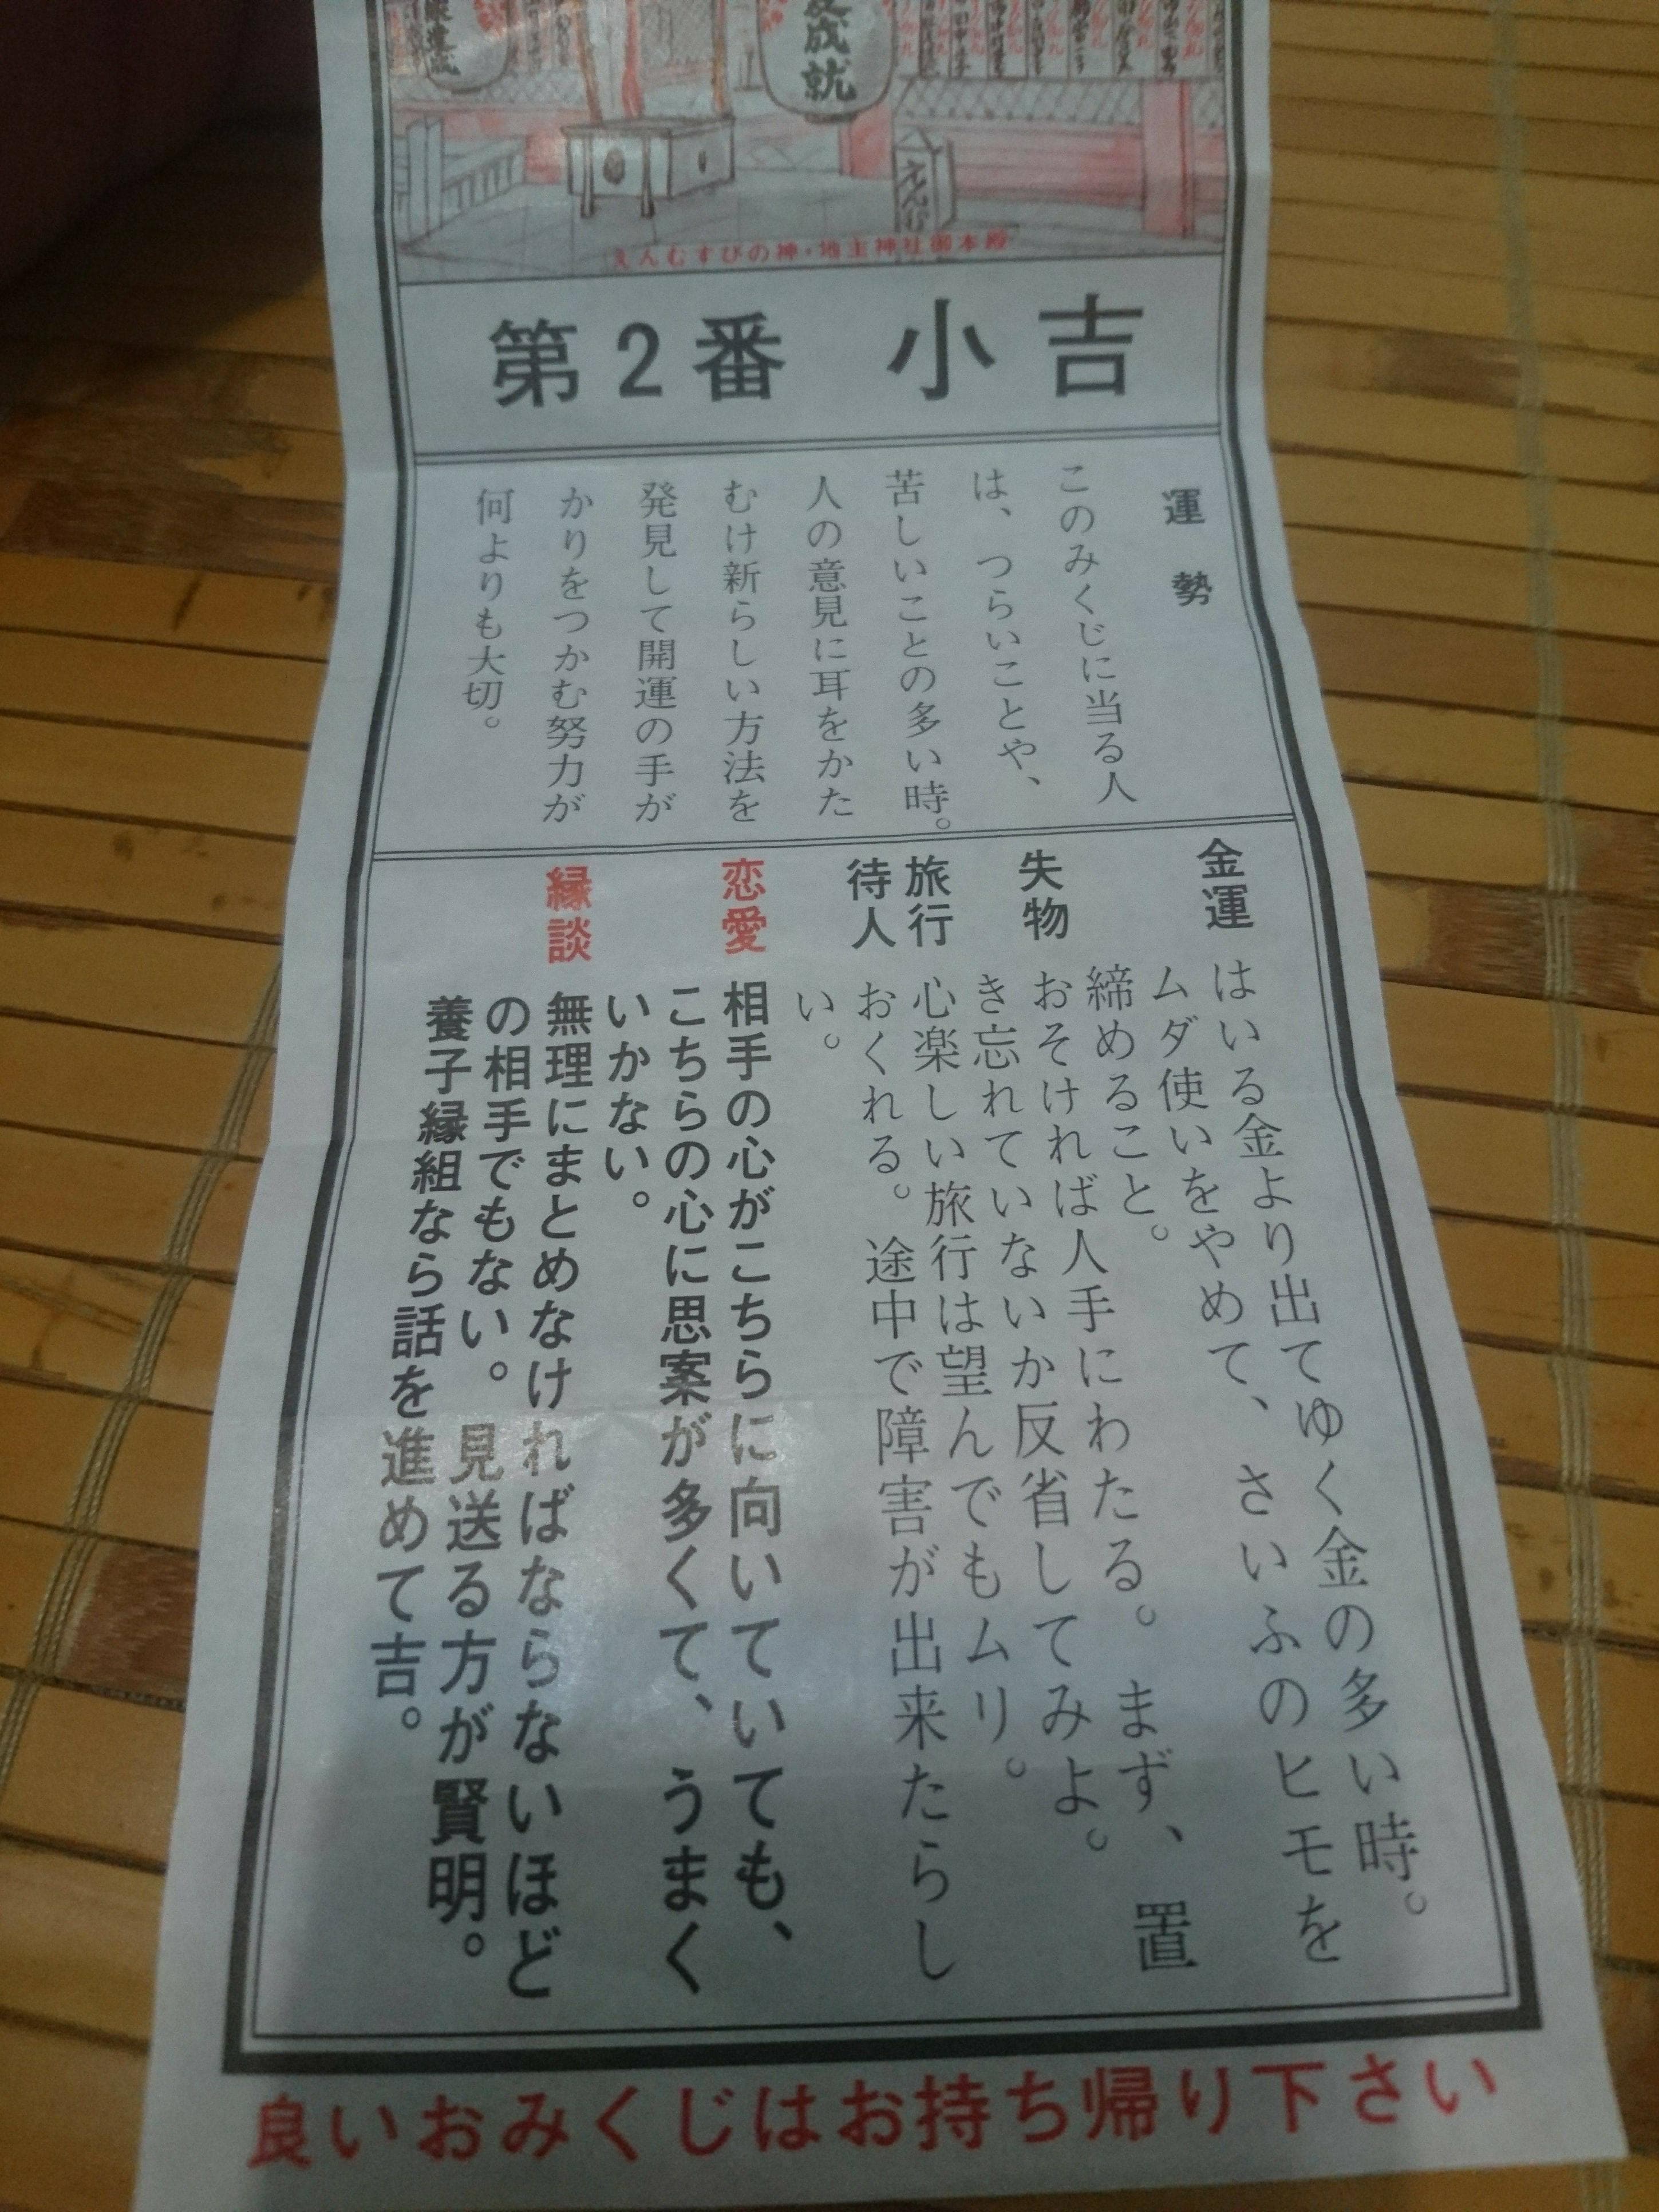 成就
えんむすびの神・地主神社御本殿
第2番 小吉
運勢
このみくじに当る人
は、つらいことや、
苦しいことの多い時。
人の意見に耳をかた
むけ新らしい方法を
発見して開運の手が
かりをつかむ努力が
何よりも大切。
金運
はいる金より出てゆく金の多い時。
ムダ使いをやめて、さいふのヒモを
締めること。
失物
おそければ人手にわたる。まず、置
き忘れていないか反省してみよ。
旅行
心楽しい旅行は望んでもムリ。
待人
おくれる。途中で障害が出来たらし
い。
恋愛
相手の心がこちらに向いていても、
こちらの心に思案が多くて、うまく
いかない。
縁談
無理にまとめなければならないほど
の相手でもない。見送る方が賢明。
養子縁組なら話を進めて吉。
良いおみくじはお持ち帰り下さい